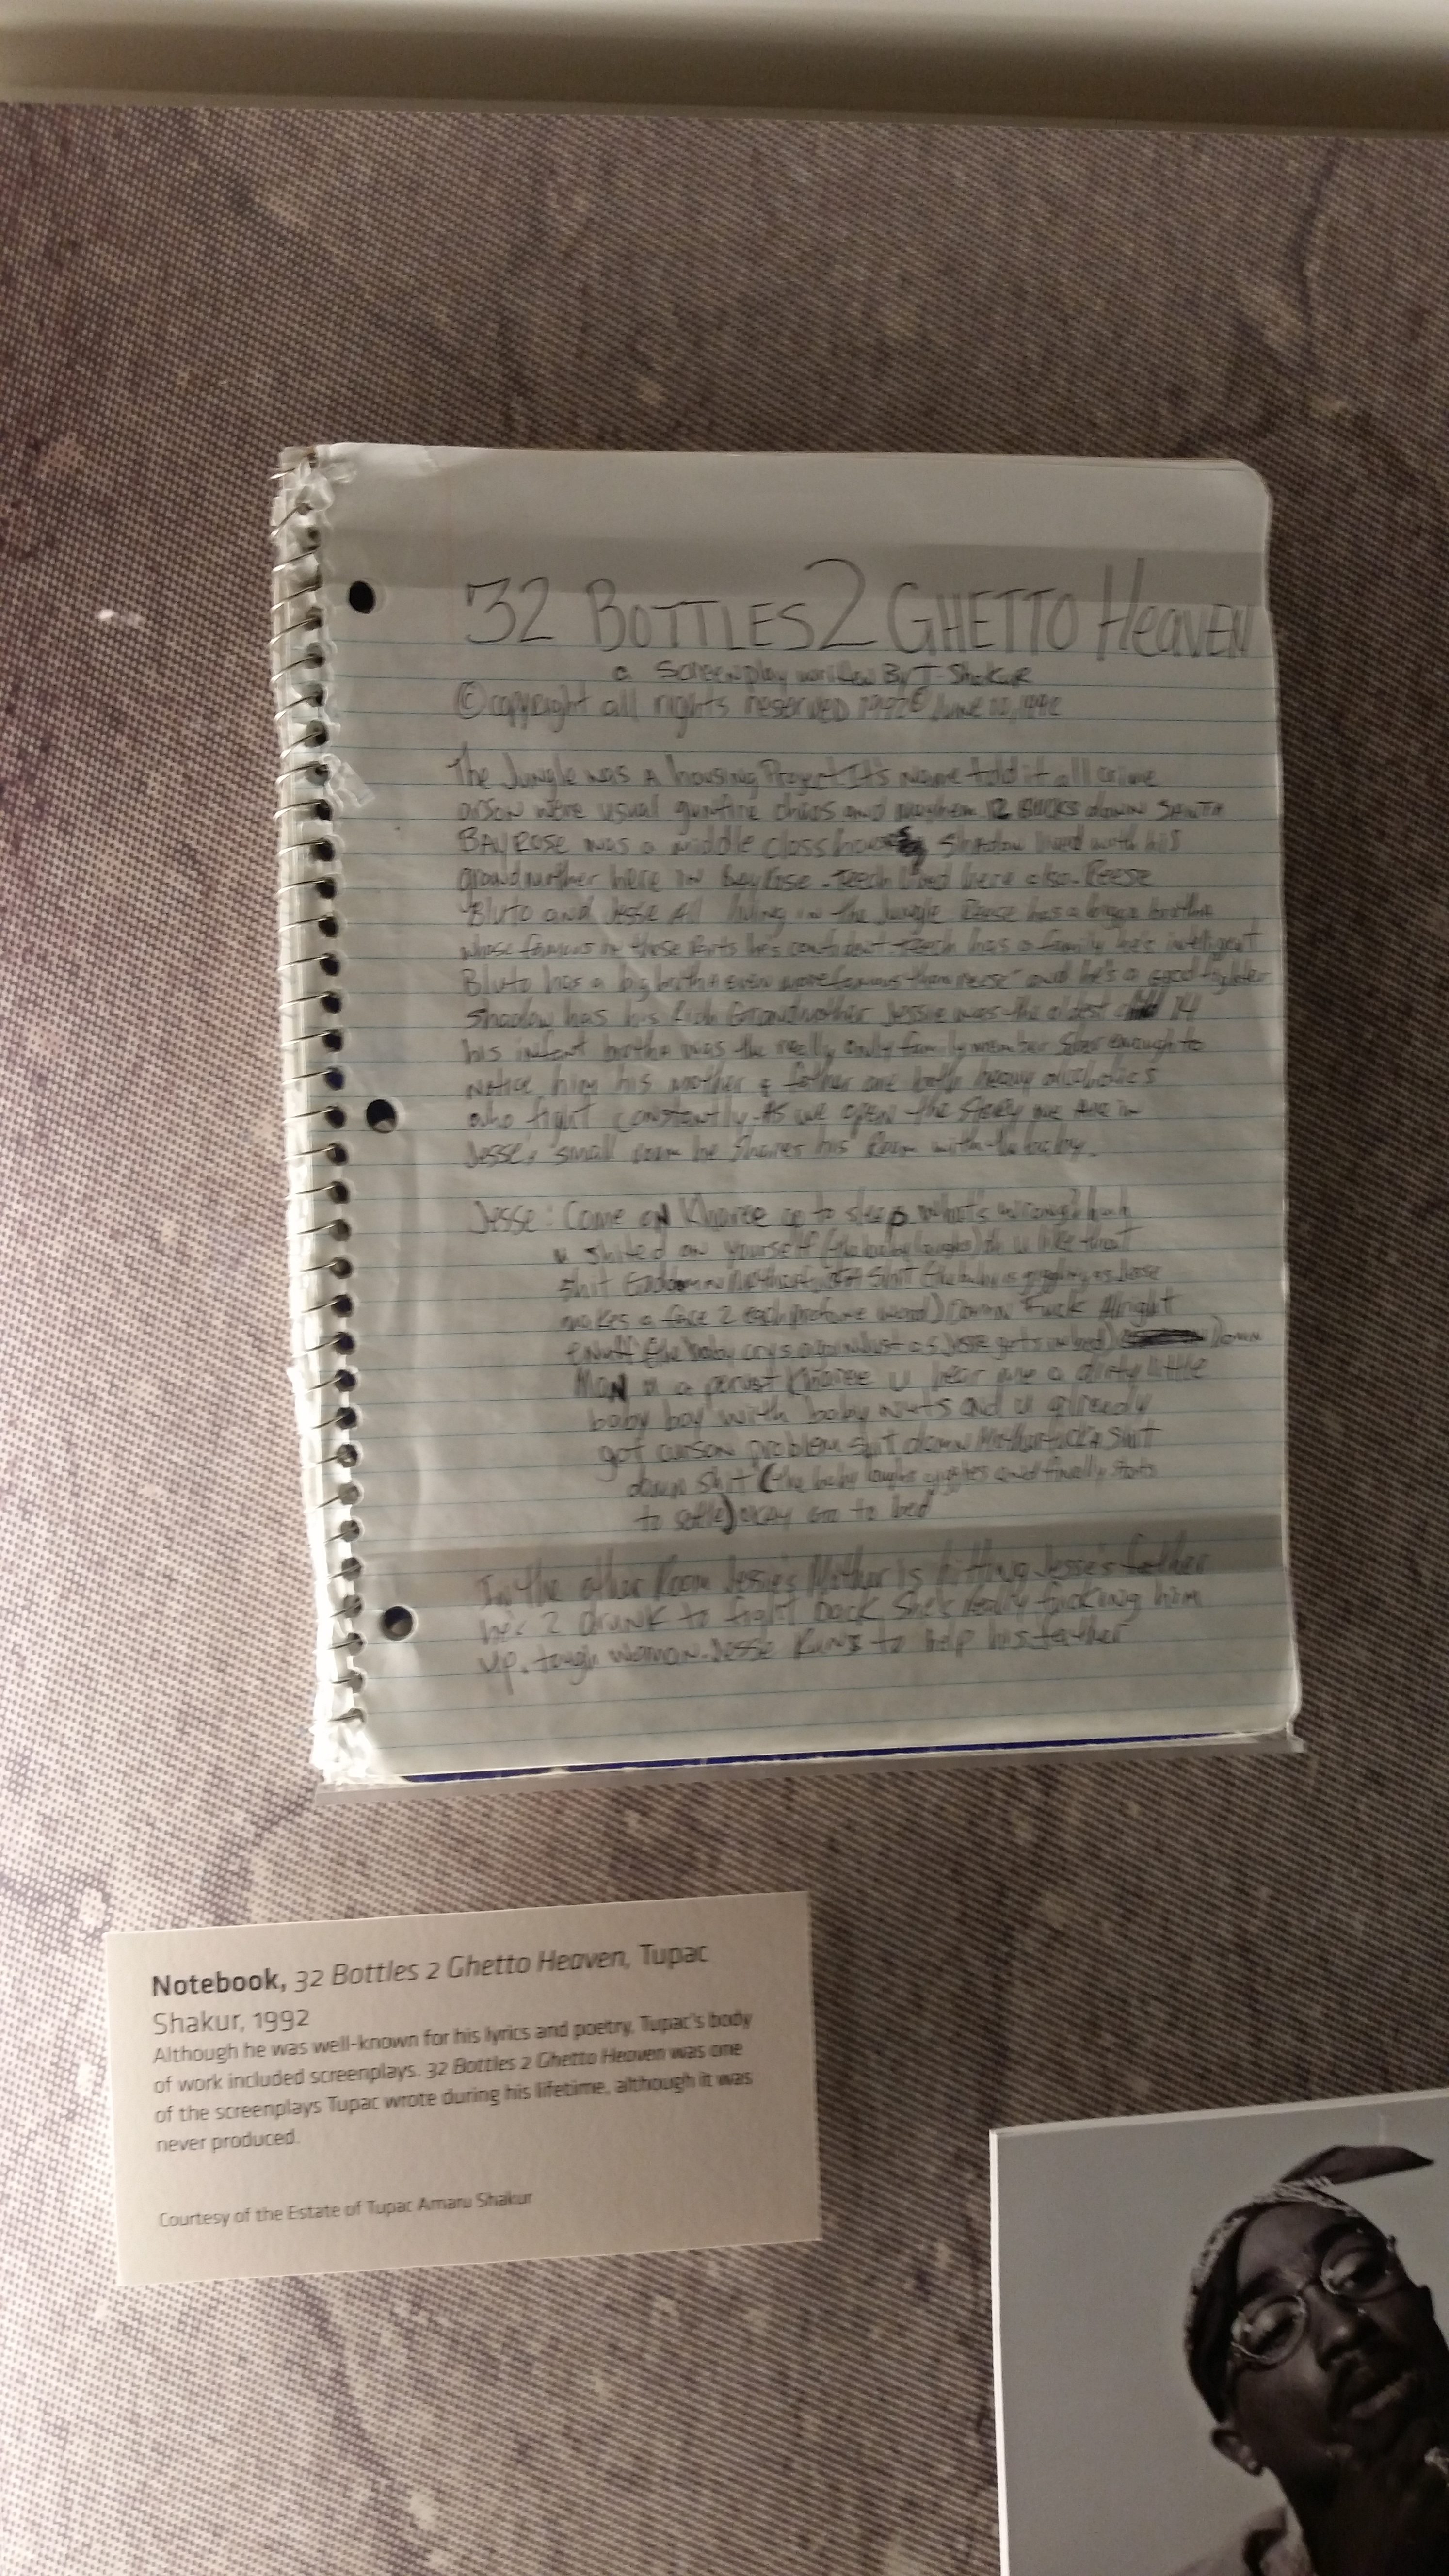 32 BOTTLES 2 GHETTO HeaVEN
a Screenplay written By T. Shakur
© copyright all rights reserved 1992 © June 1992
The Jungle was A housing Project It's Name told it all crime
arson were usual gunfire chaos and mayhem 12 Blocks down SANTA
BAYROSE was a middle class Shadow lived with his
grandmother here IN BayRose. Teech lived here also. Reese
Bluto and Jesse All living IN The Jungle Reese has a bigga brotha
whose famous in these Parts he's confident. Teech has a family he's intelligent
Bluto has a big brotha even more famous than reese and he's a good fighter
Shadow has his Rich Grandmother Jessie was the oldest child 14
his infant brotha was the really only family member Sober enough to
Notice him his mother & father are both heavy alcoholics
who fight constantly. As we open the Story we Are in
Jesse, small room he Shares his Room with the baby.
Jesse: Come oN Kharee go to sleep what's wrong? huh
u shited on yourself (the baby laughs) Oh u like that
shit Shit (the baby is giggling as Jesse
makes a face 2 each profane word) Damn Fuck Alright
enuff (the baby crys again Just as Jesse gets in bed) Damn
MaN u a pervst Kharee u hear me a dirty little
baby boy with baby nuts and u already
got cuson problem Shit damn Mothafucka Shit
damn Shit (the baby laughs giggles and finally starts
to settle) okay Go to bed
In the other Room Jessie's Mother Is hitting Jesse's father
he's 2 drunk to fight back She's really fucking him
up. tough woman. Jesse RuNs to help his father
Notebook, 32 Bottles 2 Ghetto Heaven, Tupac
Shakur, 1992
Although he was well-known for his lyrics and poetry, Tupac's body
of work included screenplays. 32 Bottles 2 Ghetto Heaven was one
of the screenplays Tupac wrote during his lifetime, although it was
never produced.
Courtesy of the Estate of Tupac Amaru Shakur